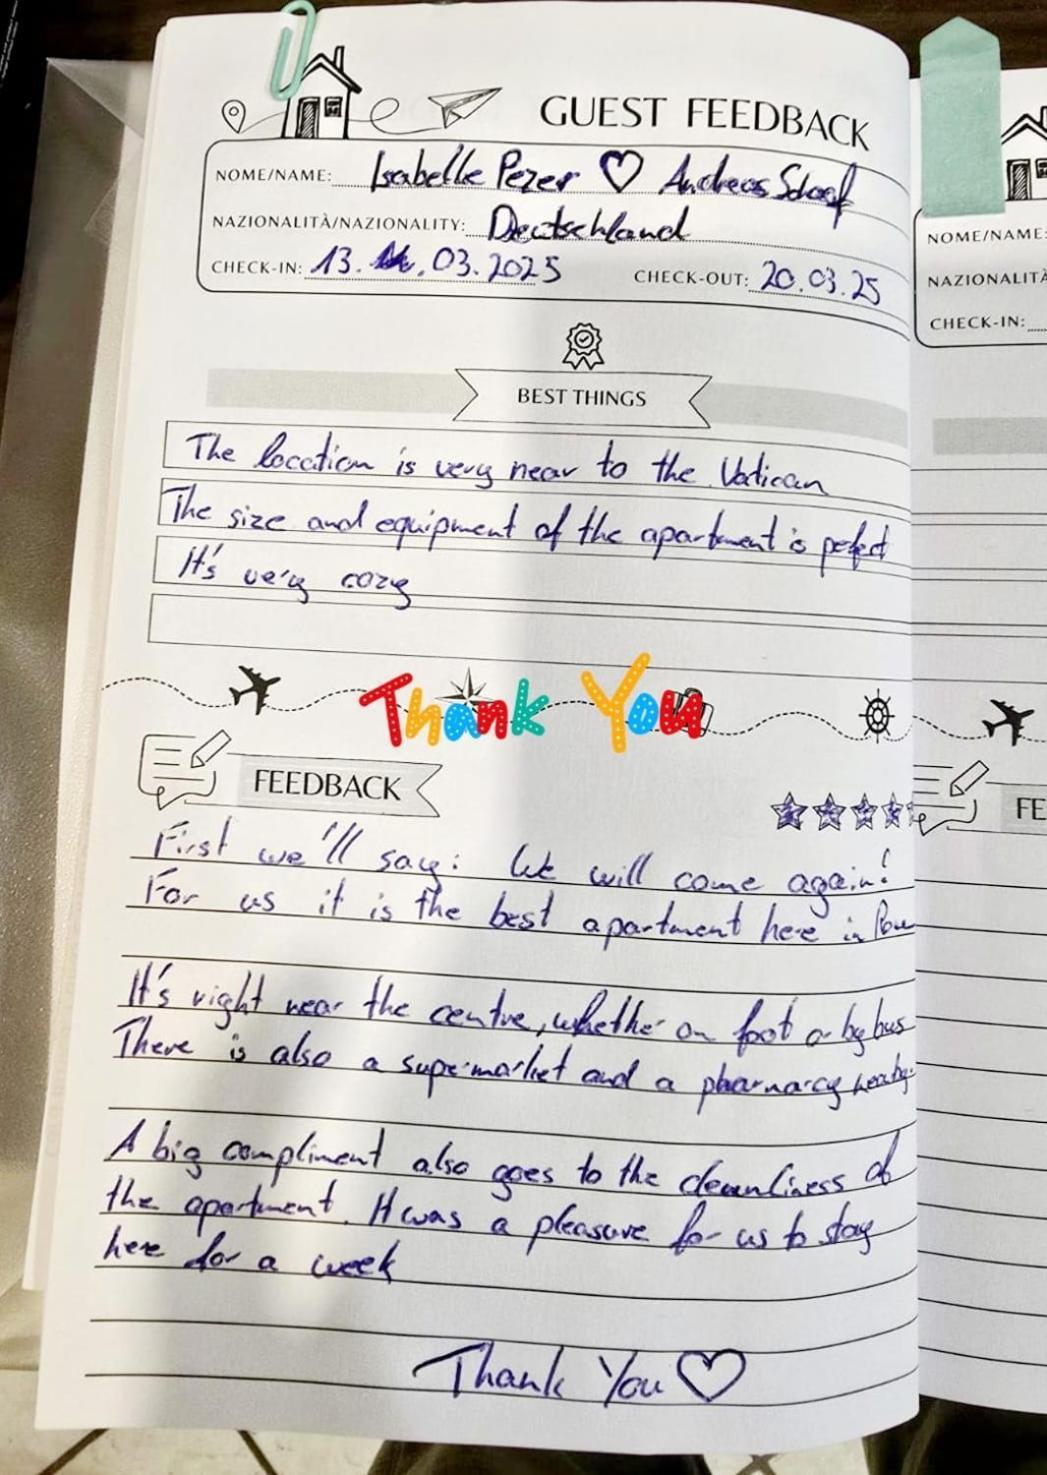 GUEST FEEDBACK
NOME/NAME: Isabelle Pezer ♡ Andreas Schaaf
NAZIONALITÀ/NAZIONALITY: Deutschland
CHECK-IN: 13. .03.2025 CHECK-OUT: 20.03.25
BEST THINGS
The location is very near to the Vatican
The size and equipment of the apartment is pefect
It's very cozy
Thank You
FEEDBACK
First we'll say: We will come again!
For us it is the best apartment here in Rome
It's right near the centre, whether on foot or by bus
There is also a supermarket and a pharmarcy nearby.
A big compliment also goes to the cleanliness of
the apartment. It was a pleasure for us to stay
here for a week
Thank You ♡
NOME/NAME:
NAZIONALITÀ
CHECK-IN:
FE